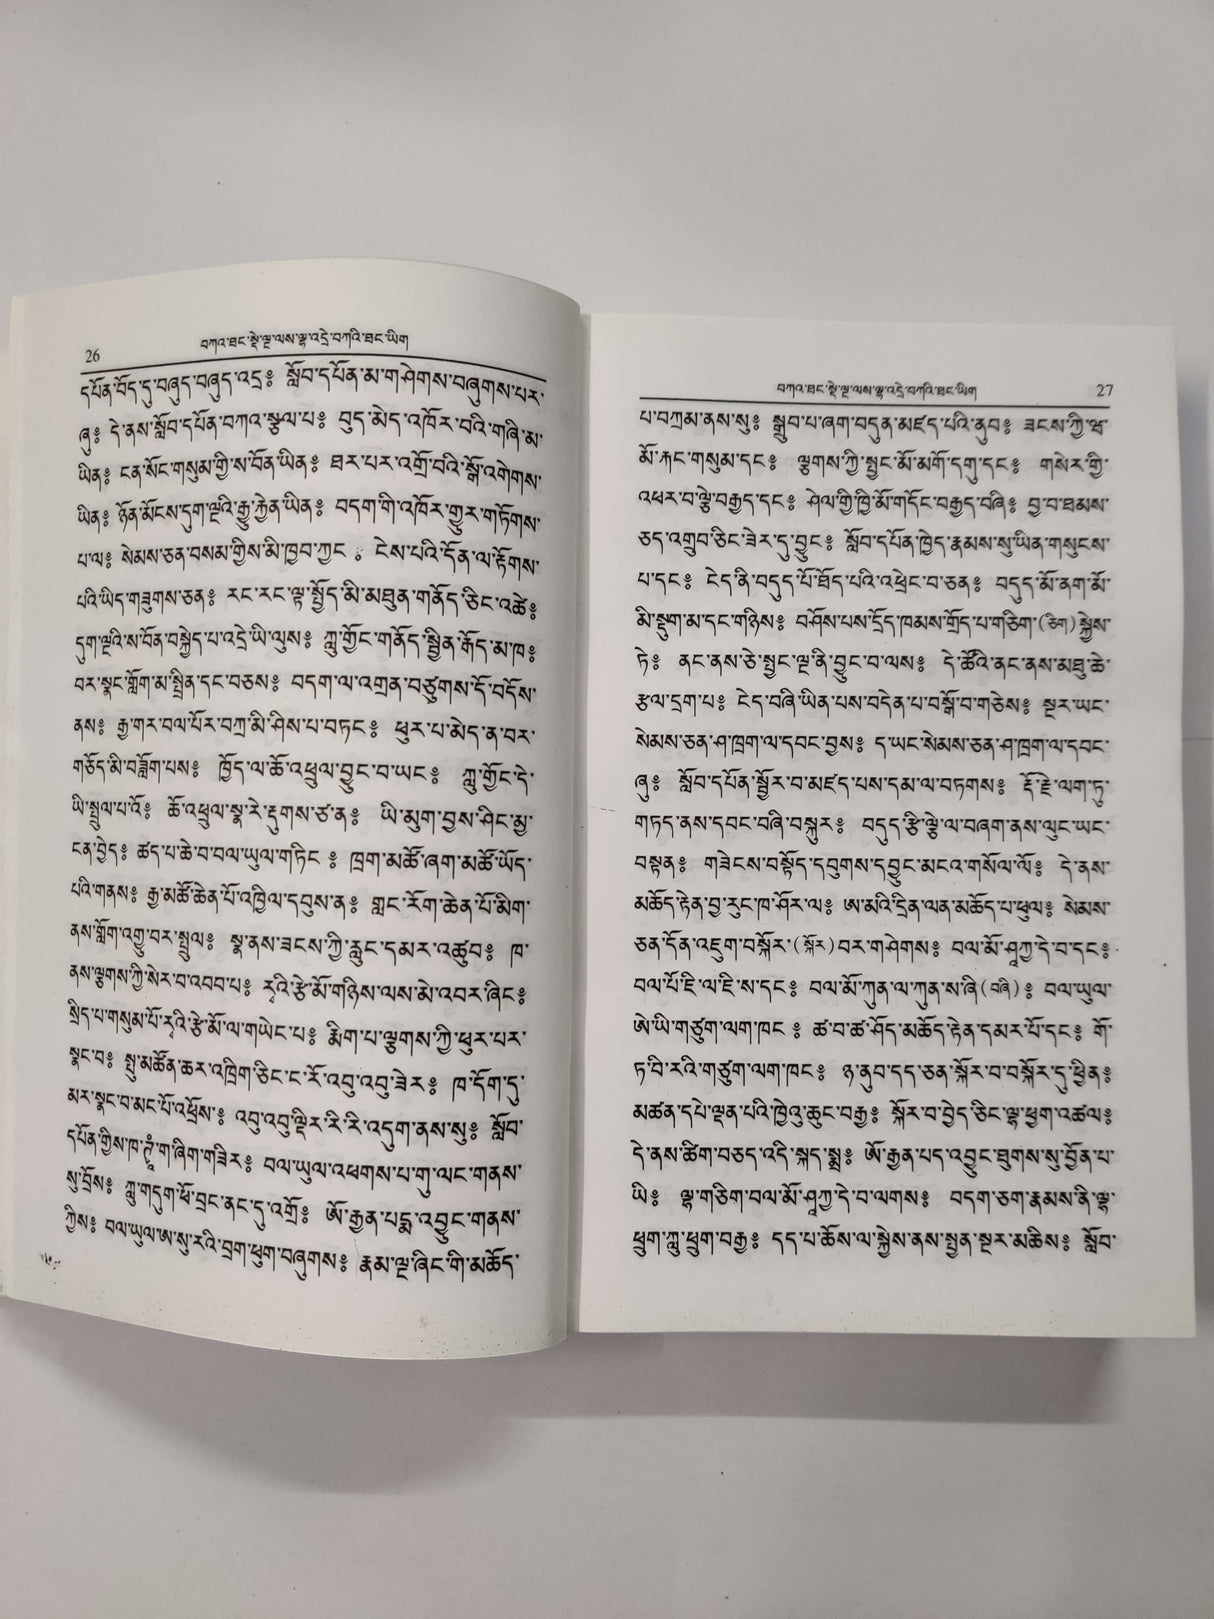 26
བཀའ་ཐང་སྡེ་ལྔ་ལས་ལྷ་འདྲེ་བཀའི་ཐང་ཡིག
དཔོན་བོད་དུ་བཞུད་བཞུད་འདྲ༔ སློབ་དཔོན་མ་གཤེགས་བཞུགས་པར་
ཞུ༔ དེ་ནས་སློབ་དཔོན་བཀའ་སྩལ་པ༔ བུད་མེད་འཁོར་བའི་གཞི་མ་
ཡིན༔ ངན་སོང་གསུམ་གྱི་ས་བོན་ཡིན༔ ཐར་པར་འགྲོ་བའི་སྒོ་འགེགས་
ཡིན༔ ཉོན་མོངས་དུག་ལྔའི་རྒྱུ་རྐྱེན་ཡིན༔ བདག་གི་འཁོར་གྱུར་གཏོགས་
པ་ལ༔ སེམས་ཅན་བསམ་གྱིས་མི་ཁྱབ་ཀྱང༌༔ ངེས་པའི་དོན་ལ་རྟོགས་
པའི་ཡིད་གཟུགས་ཅན༔ རང་རང་ལྟ་སྤྱོད་མི་མཐུན་གནོད་ཅིང་འཚེ༔
དུག་ལྔའི་ས་བོན་བསྐྱེད་པ་འདྲེ་ཡི་ལུས༔ ཀླུ་གྱོང་གནོད་སྦྱིན་རྒོད་མ་ཁ༔
བར་སྣང་གློག་མ་སྤྲིན་དང་བཅས༔ བདག་ལ་འགྲན་བཙུགས་དོ་བདོས་
ནས༔ རྒྱ་གར་བལ་པོར་བཀྲ་མི་ཤིས་པ་བཏང༔ ཕུར་པ་མེད་ན་བར་
གཅོད་མི་བཟློག་པས༔ ཁྱོད་ལ་ཆོ་འཕྲུལ་བྱུང་བ་ཡང༔ ཀླུ་གྱོང་དེ་
ཡི་སྤྲུལ་པ་འོ༔ ཆོ་འཕྲུལ་སྣ་རེ་རྡུགས་ཙ་ན༔ ཡི་མུག་བྱས་ཤིང་མྱ་
ངན་བྱེད༔ ཚད་པ་ཆེ་བ་བལ་ཡུལ་གཏིང༔ ཁྲག་མཚོ་ཞག་མཚོ་ཡོད་
པའི་གནས༔ རྒྱ་མཚོ་ཆེན་པོ་འཁྱིལ་དབུས་ན༔ གླང་རོག་ཆེན་པོ་མིག་
ནས་གློག་འགྱུ་བར་སྤྲུལ༔ སྣ་ནས་ཟངས་ཀྱི་རླུང་དམར་འཚུབ༔ ཁ་
ནས་ལྕགས་ཀྱི་སེར་བ་འབབ་པ༔ རྭའི་རྩེ་མོ་གཉིས་ལས་མེ་འབར་ཞིང༔
སྲིད་པ་གསུམ་པོ་རྭའི་རྩེ་མོ་ལ་གཡེང་པ༔ རྨིག་པ་ལྕགས་ཀྱི་ཕུར་པར་
སྣང་བ༔ སྤུ་མཚོན་ཆར་འཁྲིག་ཅིང་ང་རོ་འབུ་འབུ་ཟེར༔ ཁ་དོག་དུ་
མར་སྣང་བ་མང་པོ་འཕྲོས༔ འབུ་འབུ་ལྡིར་རི་རི་འདུག་ནས་སུ༔ སློབ་
དཔོན་གྱིས་ཁ་ཊྭཾ་ག་ཞིག་གཟིར༔ བལ་ཡུལ་འཕགས་པ་གུ་ལང་གནས་
སུ་བྲོས༔ ཀླུ་གདུག་ཕོ་བྲང་ནང་དུ་འགྲོ༔ ཨོ་རྒྱན་པདྨ་འབྱུང་གནས་
ཀྱིས༔ བལ་ཡུལ་ཨ་སུ་རའི་བྲག་ཕུག་བཞུགས༔ རྣམ་ལྔ་ཞིང་གི་མཆོད་
བཀའ་ཐང་སྡེ་ལྔ་ལས་ལྷ་འདྲེ་བཀའི་ཐང་ཡིག
27
པ་བཀྲམ་ནས་སུ༔ སྒྲུབ་པ་ཞག་བདུན་མཛད་པའི་ནུབ༔ ཟངས་ཀྱི་ཝ་
མོ་རྐང་གསུམ་དང༔ ལྕགས་ཀྱི་སྤྱང་མོ་མགོ་དགུ་དང༔ གསེར་གྱི་
འཕར་བ་ལྕེ་བརྒྱད་དང༔ ཤེལ་གྱི་ཁྱི་མོ་གདོང་བརྒྱད་བཞི༔ བྱ་བ་ཐམས་
ཅད་འགྲུབ་ཅིང་ཟེར་དུ་བྱུང༔ སློབ་དཔོན་ཁྱེད་རྣམས་སུ་ཡིན་གསུངས་
པ་དང༔ ངེད་ནི་བདུད་པོ་ཐོད་པའི་འཕྲེང་བ་ཅན༔ བདུད་མོ་ནག་མོ་
མི་སྡུག་མ་དང་གཉིས༔ བཤོས་པས་དྲོད་ཁམས་གྲོད་པ་གཅིག་(ཅིག)སྐྱེས་
ཏེ༔ ནང་ནས་ཅེ་སྤྱང་ལྔ་ནི་བྱུང་བ་ལས༔ དེ་ཚོའི་ནང་ནས་མཐུ་ཆེ་
རྩལ་དྲག་པ༔ ངེད་བཞི་ཡིན་པས་བདེན་པ་བསྒོ་བ་གཅེས༔ སྔར་ཡང་
སེམས་ཅན་ཤ་ཁྲག་ལ་དབང་བྱས༔ ད་ཡང་སེམས་ཅན་ཤ་ཁྲག་ལ་དབང་
ཞུ༔ སློབ་དཔོན་སྦྱོར་བ་མཛད་པས་དམ་ལ་བཏགས༔ རྡོ་རྗེ་ལག་ཏུ་
གཏད་ནས་དབང་བཞི་བསྐུར༔ བདུད་རྩི་ལྕེ་ལ་བཞག་ནས་ལུང་ཡང་
བསྟན༔ གཟེངས་བསྟོད་དབུགས་དབྱུང་མངའ་གསོལ་ལོ༔ དེ་ནས་
མཆོད་རྟེན་བྱ་རུང་ཁ་ཤོར་ལ༔ ཨ་མའི་དྲིན་ལན་མཆོད་པ་ཕུལ༔ སེམས་
ཅན་དོན་འཇུག་བསྐོར་(སྐོར)བར་གཤེགས༔ བལ་མོ་ཤཱཀྱ་དེ་བ་དང༔
བལ་པོ་ཇི་ལ་ཇི་ས་དང༔ བལ་མོ་ཀུན་ལ་ཀུན་ས་ཞི(བཞི)༔ བལ་ཡུལ་
ཨེ་ཡི་གཙུག་ལག་ཁང༔ ཚ་བ་ཚ་ཤོད་མཆོད་རྟེན་དམར་པོ་དང༔ གོ་
ཏ་བི་རའི་གཙུག་ལག་ཁང༔ ཉ་ནུབ་དད་ཅན་སྐོར་བ་བསྐོར་དུ་ཕྱིན༔
མཚན་དཔེ་ལྡན་པའི་ཁྱེའུ་ཆུང་བརྒྱ༔ སྐོར་བ་བྱེད་ཅིང་ལྷ་ཕྱག་འཚལ༔
དེ་ནས་ཚིག་བཅད་འདི་སྐད་སྨྲ༔ ཨོ་རྒྱན་པད་འབྱུང་ཐུགས་སུ་བྱོན་པ་
ཡི༔ ལྷ་གཅིག་བལ་མོ་ཤཱཀྱ་དེ་བ་ལགས༔ བདག་ཅག་རྣམས་ནི་ལྷ་
ཕྲུག་ཀླུ་ཕྲུག་བརྒྱ༔ དད་པ་ཆོས་ལ་སྐྱེས་ནས་སྤྱན་སྔར་མཆིས༔ སློབ་